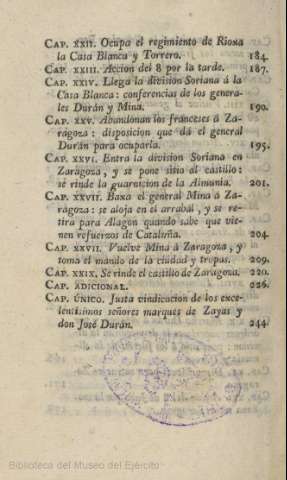 CAP. XXII. Ocupa el regimiento de Rioxa
la Casa Blanca y Torrero. 184.
CAP. XXIII. Accion del 8 por la tarde. 187.
CAP. XXIV. Llega la division Soriana á la
Casa Blanca: conferencias de los genera-
les Durán y Mina. 190.
CAP. XXV. Abandonan los franceses á Za-
ragoza: disposicion que dá el general
Durán para ocuparla. 195.
CAP. XXVI. Entra la division Soriana en
Zaragoza, y se pone sitio al castillo:
se rinde la guarnicion de la Almunia. 201.
CAP. XXVII. Baxa el general Mina á Za-
ragoza: se aloja en el arrabal, y se re-
tira para Alagon quando sabe que vie-
nen refuerzos de Cataluña. 204.
CAP. XXVII. Vuelve Mina á Zaragoza, y
toma el mando de la ciudad y tropas. 209.
CAP. XXIX. Se rinde el castillo de Zaragoza. 220.
CAP. ADICIONAL. 226.
CAP. ÚNICO. Justa vindicacion de los exce-
lentísimos señores marques de Zayas y
don José Durán. 244.
Biblioteca del Museo del Ejército